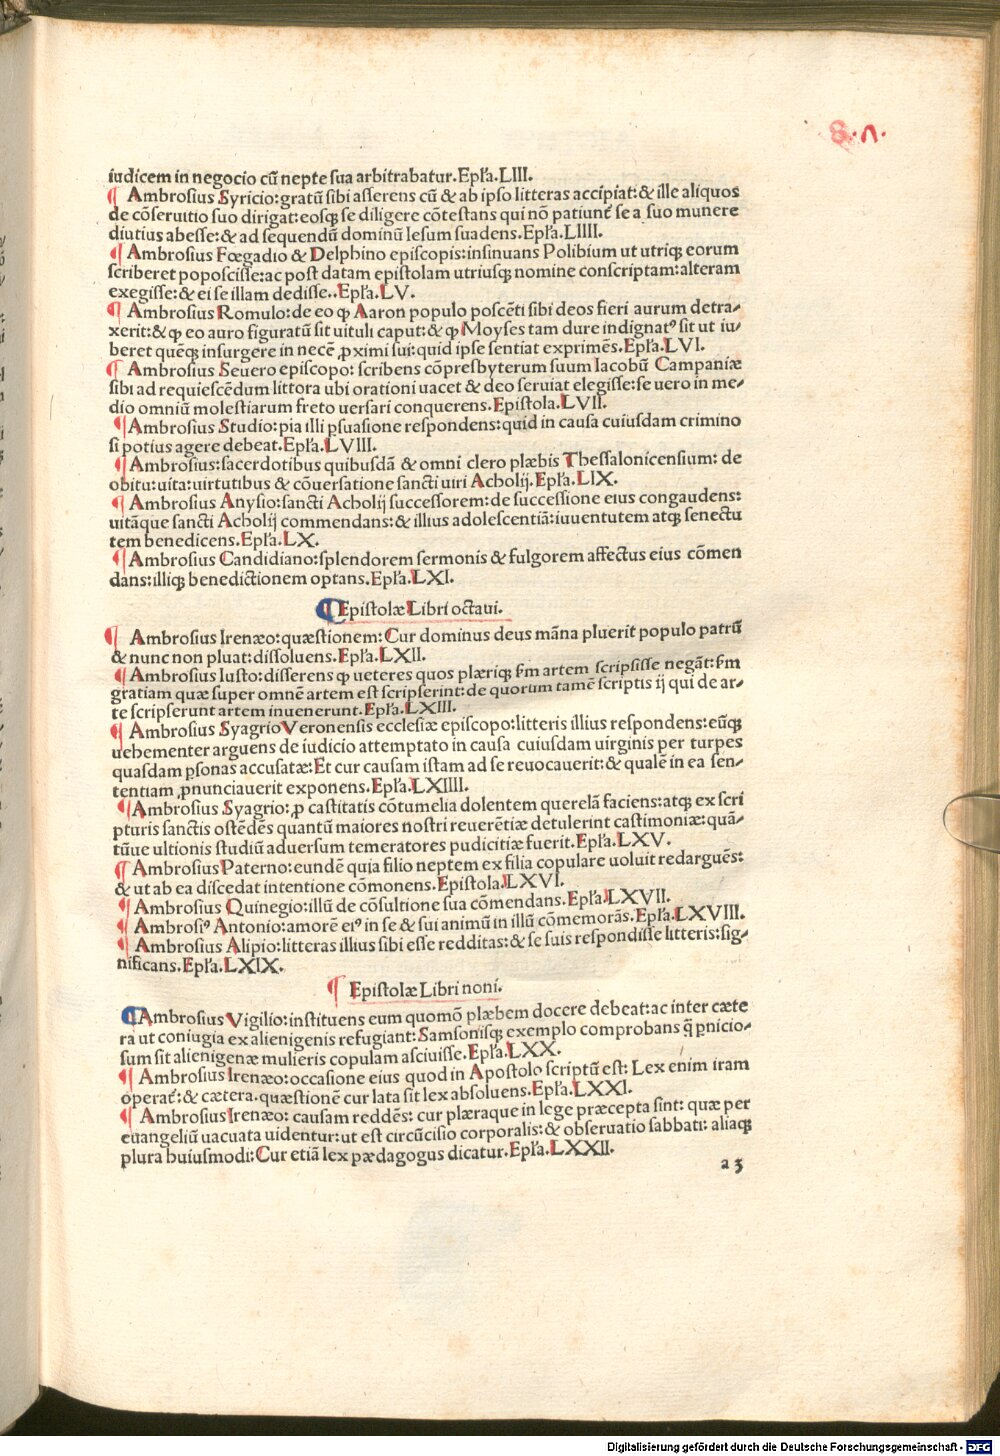 8.Λ.
iudicem in negocio cū nepte sua arbitrabatur. Epła. LIII.
¶ Ambrosius Syricio: gratū sibi asserens cū & ab ipso litteras accipiat: & ille aliquos
de cōseruitio suo dirigat: eosqꝫ se diligere cōtestans qui nō patiunt̄ se a suo munere
diutius abesse: & ad sequendū dominū Iesum suadens. Epła. LIIII.
¶ Ambrosius Fœgadio & Delphino episcopis: insinuans Polibium ut utriqꝫ eorum
scriberet poposcisse: ac post datam epistolam utriusqꝫ nomine conscriptam: alteram
exegisse: & ei se illam dedisse.. Epła. LV.
¶ Ambrosius Romulo: de eo ꝙ Aaron populo poscēti sibi deos fieri aurum detra-
xerit: & ꝙ eo auro figuratū sit uituli caput: & ꝙ Moyses tam dure indignatꝰ sit ut iu-
beret quēqꝫ insurgere in necē ꝓximi sui: quid ipse sentiat exprimēs. Epła. LVI.
¶ Ambrosius Seuero episcopo: scribens cōpresbyterum suum Iacobū Campaniæ
sibi ad requiescēdum littora ubi orationi uacet & deo seruiat elegisse: se uero in me-
dio omniū molestiarum freto uersari conquerens. Epistola. LVII.
¶ Ambrosius Studio: pia illi ꝑsuasione respondens: quid in causa cuiusdam crimino
si potius agere debeat. Epła. LVIII.
¶ Ambrosius: sacerdotibus quibusdā & omni clero plæbis Thessalonicensium: de
obitu: uita: uirtutibus & cōuersatione sancti uiri Acholij. Epła. LIX.
¶ Ambrosius Anysio: sancti Acholij successorem: de successione eius congaudens:
uitāque sancti Acholij commendans: & illius adolescentiā: iuuentutem atqꝫ senectu
tem benedicens. Epła. LX.
¶ Ambrosius Candidiano: splendorem sermonis & fulgorem affectus eius cōmen
dans: illiqꝫ benedictionem optans. Epła. LXI.
¶ Epistolæ Libri octaui.
¶ Ambrosius Irenæo: quæstionem: Cur dominus deus māna pluerit populo patrū
& nunc non pluat: dissoluens. Epła. LXII.
¶ Ambrosius Iusto: disserens ꝙ ueteres quos plæriqꝫ s̄m artem scripsisse negāt: s̄m
gratiam quæ super omnē artem est scripserint: de quorum tamē scriptis ij qui de ar-
te scripserunt artem inuenerunt. Epła. LXIII.
¶ Ambrosius Syagrio Veronensis ecclesiæ episcopo: litteris illius respondens: eūqꝫ
uehementer arguens de iudicio attemptato in causa cuiusdam uirginis per turpes
quasdam ꝑsonas accusatæ: Et cur causam istam ad se reuocauerit: & qualē in ea sen-
tentiam ꝓnunciauerit exponens. Epła. LXIIII.
¶ Ambrosius Syagrio: ꝓ castitatis cōtumelia dolentem querelā faciens: atqꝫ ex scri
pturis sanctis ostēdēs quantū maiores nostri reuerētiæ detulerint castimoniæ: quā-
tūue ultionis studiū aduersum temeratores pudicitiæ fuerit. Epła. LXV.
¶ Ambrosius Paterno: eundē quia filio neptem ex filia copulare uoluit redarguēs:
& ut ab ea discedat intentione cōmonens. Epistola. LXVI.
¶ Ambrosius Quinegio: illū de cōsultione sua cōmendans. Epła. LXVII.
¶ Ambrosiꝰ Antonio: amorē eiꝰ in se & sui animū in illū cōmemorās. Epła. LXVIII.
¶ Ambrosius Alipio: litteras illius sibi esse redditas: & se suis respondisse litteris: sig-
nificans. Epła. LXIX.
¶ Epistolæ Libri noni.
¶ Ambrosius Vigilio: instituens eum quomō plæbem docere debeat: ac inter cæte
ra ut coniugia ex alienigenis refugiant: Samsonisqꝫ exemplo comprobans q̄ ꝑnicio-
sum sit alienigenæ mulieris copulam asciuisse. Epła. LXX.
¶ Ambrosius Irenæo: occasione eius quod in Apostolo scriptū est: Lex enim iram
operat̄: & cætera. quæstionē cur lata sit lex absoluens. Epła. LXXI.
¶ Ambrosius Irenæo: causam reddēs: cur plæraque in lege præcepta sint: quæ per
euangeliū uacuata uidentur: ut est circūcisio corporalis: & obseruatio sabbati: aliaqꝫ
plura huiusmodi: Cur etiā lex pædagogus dicatur. Epła. LXXII.
a 3
Digitalisierung gefördert durch die Deutsche Forschungsgemeinschaft - DFG